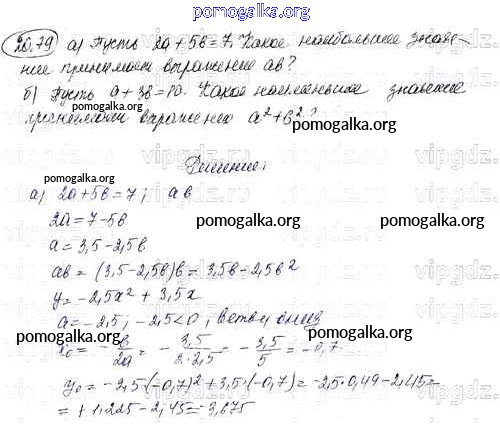 pomogalka.org
20.79 а) Пусть 2a+5b=7. Какое наибольшее значе-
ние принимает выражение ab?
б) Пусть a+3b=10. Какое наименьшее значение
принимает выражение a²+b²?
pomogalka.org
Решение.
а) 2a+5b=7; ab
2a=7-5b
pomogalka.org
pomogalka.org
a=3,5-2,5b
ab=(3,5-2,5b)b=3,5b-2,5b²
y=-2,5x²+3,5x
a=-2,5; -2,5<0, ветви вниз
pomogalka.org
pomogalka.org
x₀=-b/2a=-3,5/2·2,5=-3,5/5=-0,7
y₀=-2,5·(-0,7)²+3,5·(-0,7)=-2,5·0,49-2,45=
=+1,225-2,45=-3,675
pomogalka.org